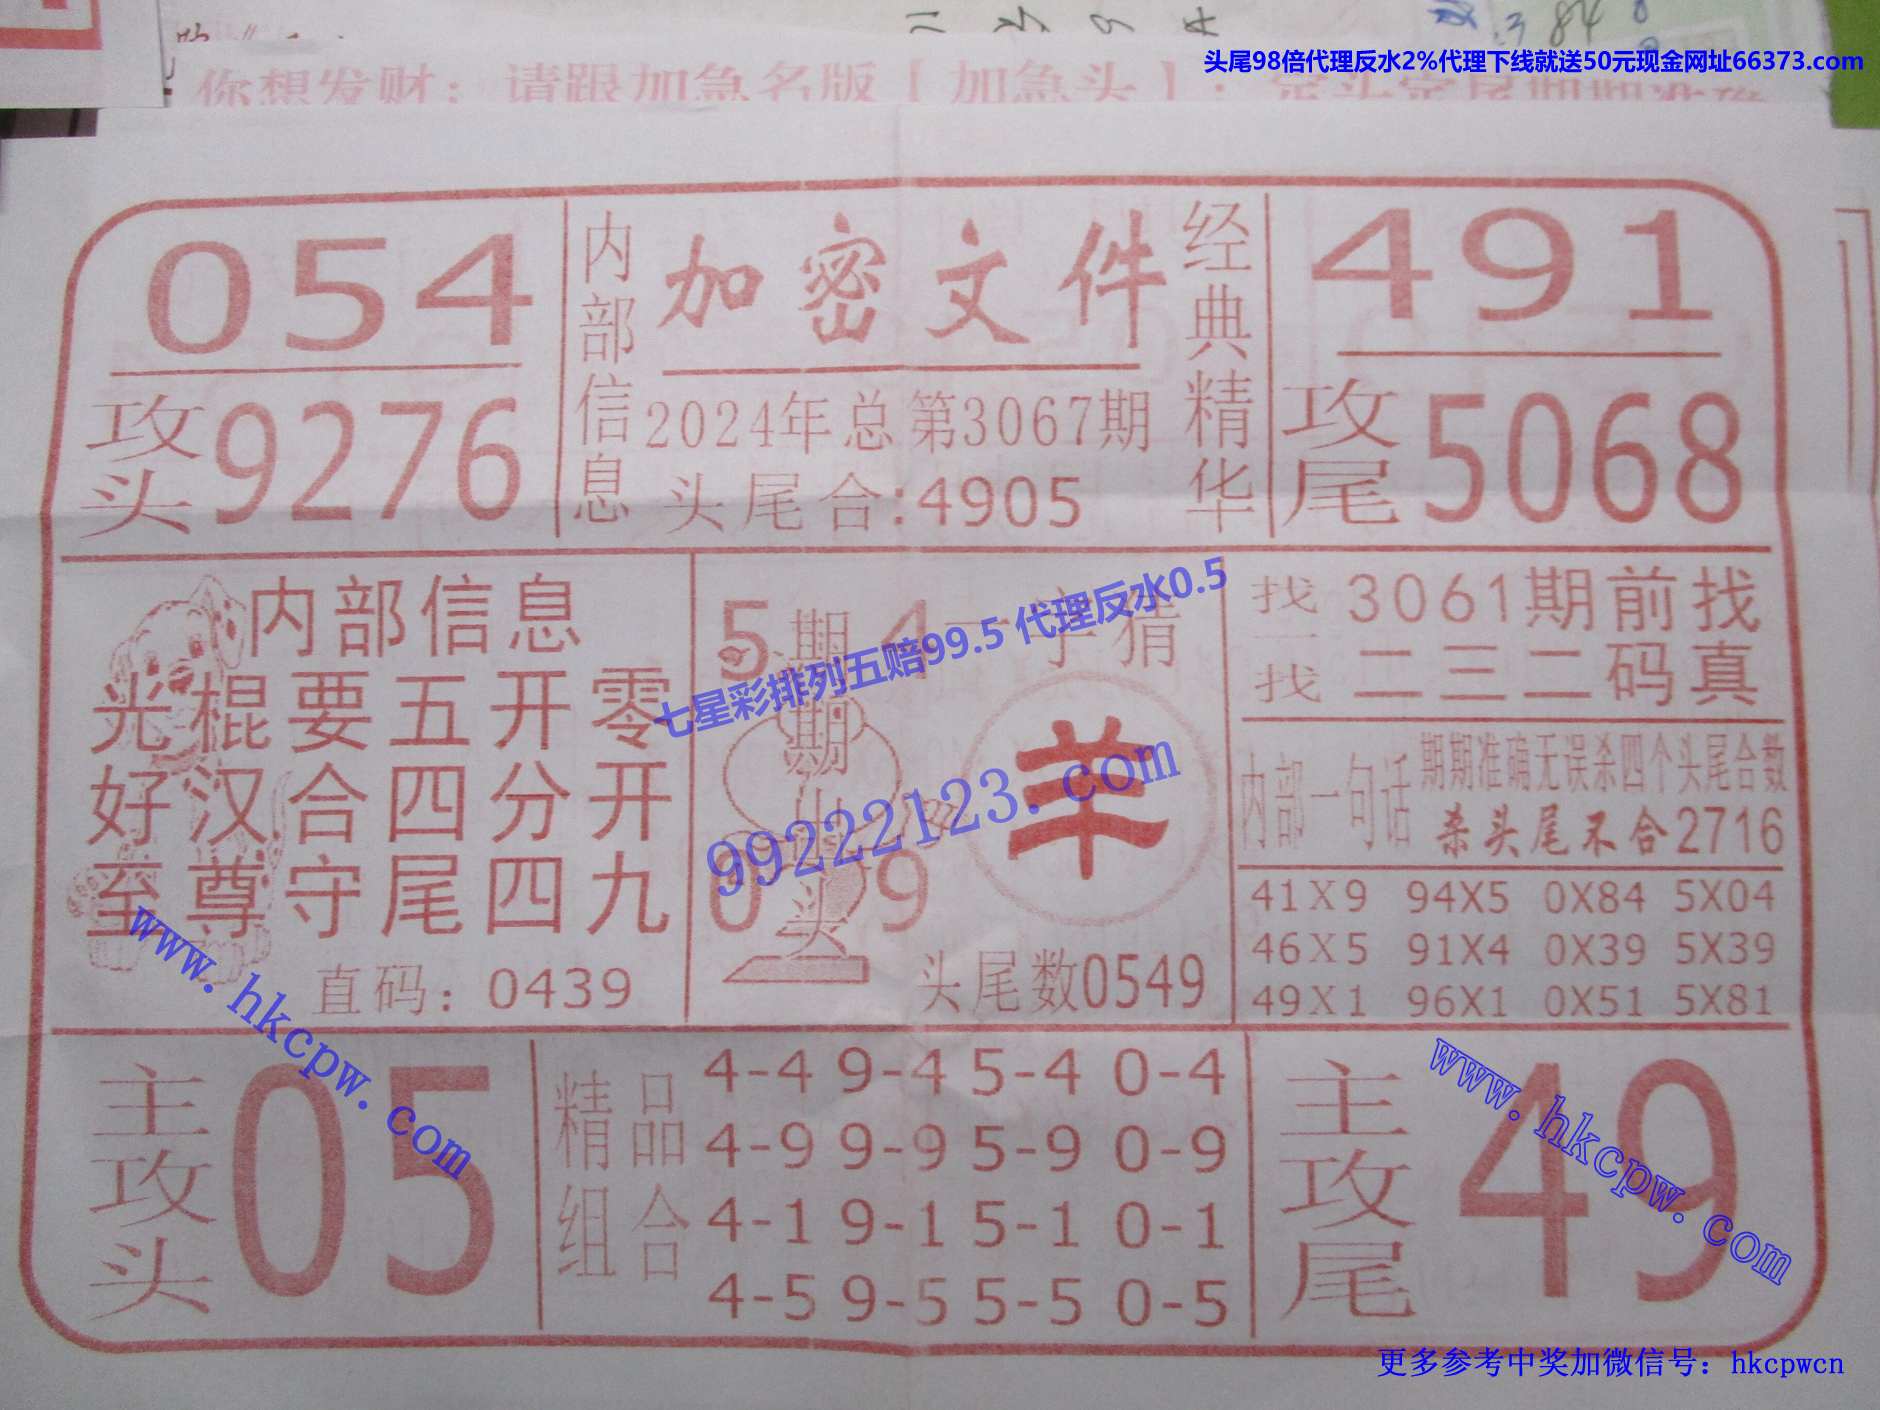 头尾98倍代理反水2%代理下线就送50元现金网址66373.com
你想发财：请跟加急名版【加急头】：
054
攻头9276
内部信息
加密文件
2024年总第3067期
头尾合:4905
经典精华
491
攻尾5068
内部信息
光棍要五开零
好汉合四分开
至尊守尾四九
直码：0439
5 期期出头 4
0 9
一字猜
羊
头尾数0549
找一找
3061期前找
二三二码真
内部一句话
期期准确无误杀四个头尾合数
杀头尾不合2716
41X9 94X5 0X84 5X04
46X5 91X4 0X39 5X39
49X1 96X1 0X51 5X81
主攻头
05
精品组合
4-4 9-4 5-4 0-4
4-9 9-9 5-9 0-9
4-1 9-1 5-1 0-1
4-5 9-5 5-5 0-5
主攻尾
49
七星彩排列五赔99.5 代理反水0.5
99222123.com
www.hkcpw.com
www.hkcpw.com
更多参考中奖加微信号：hkcpwcn